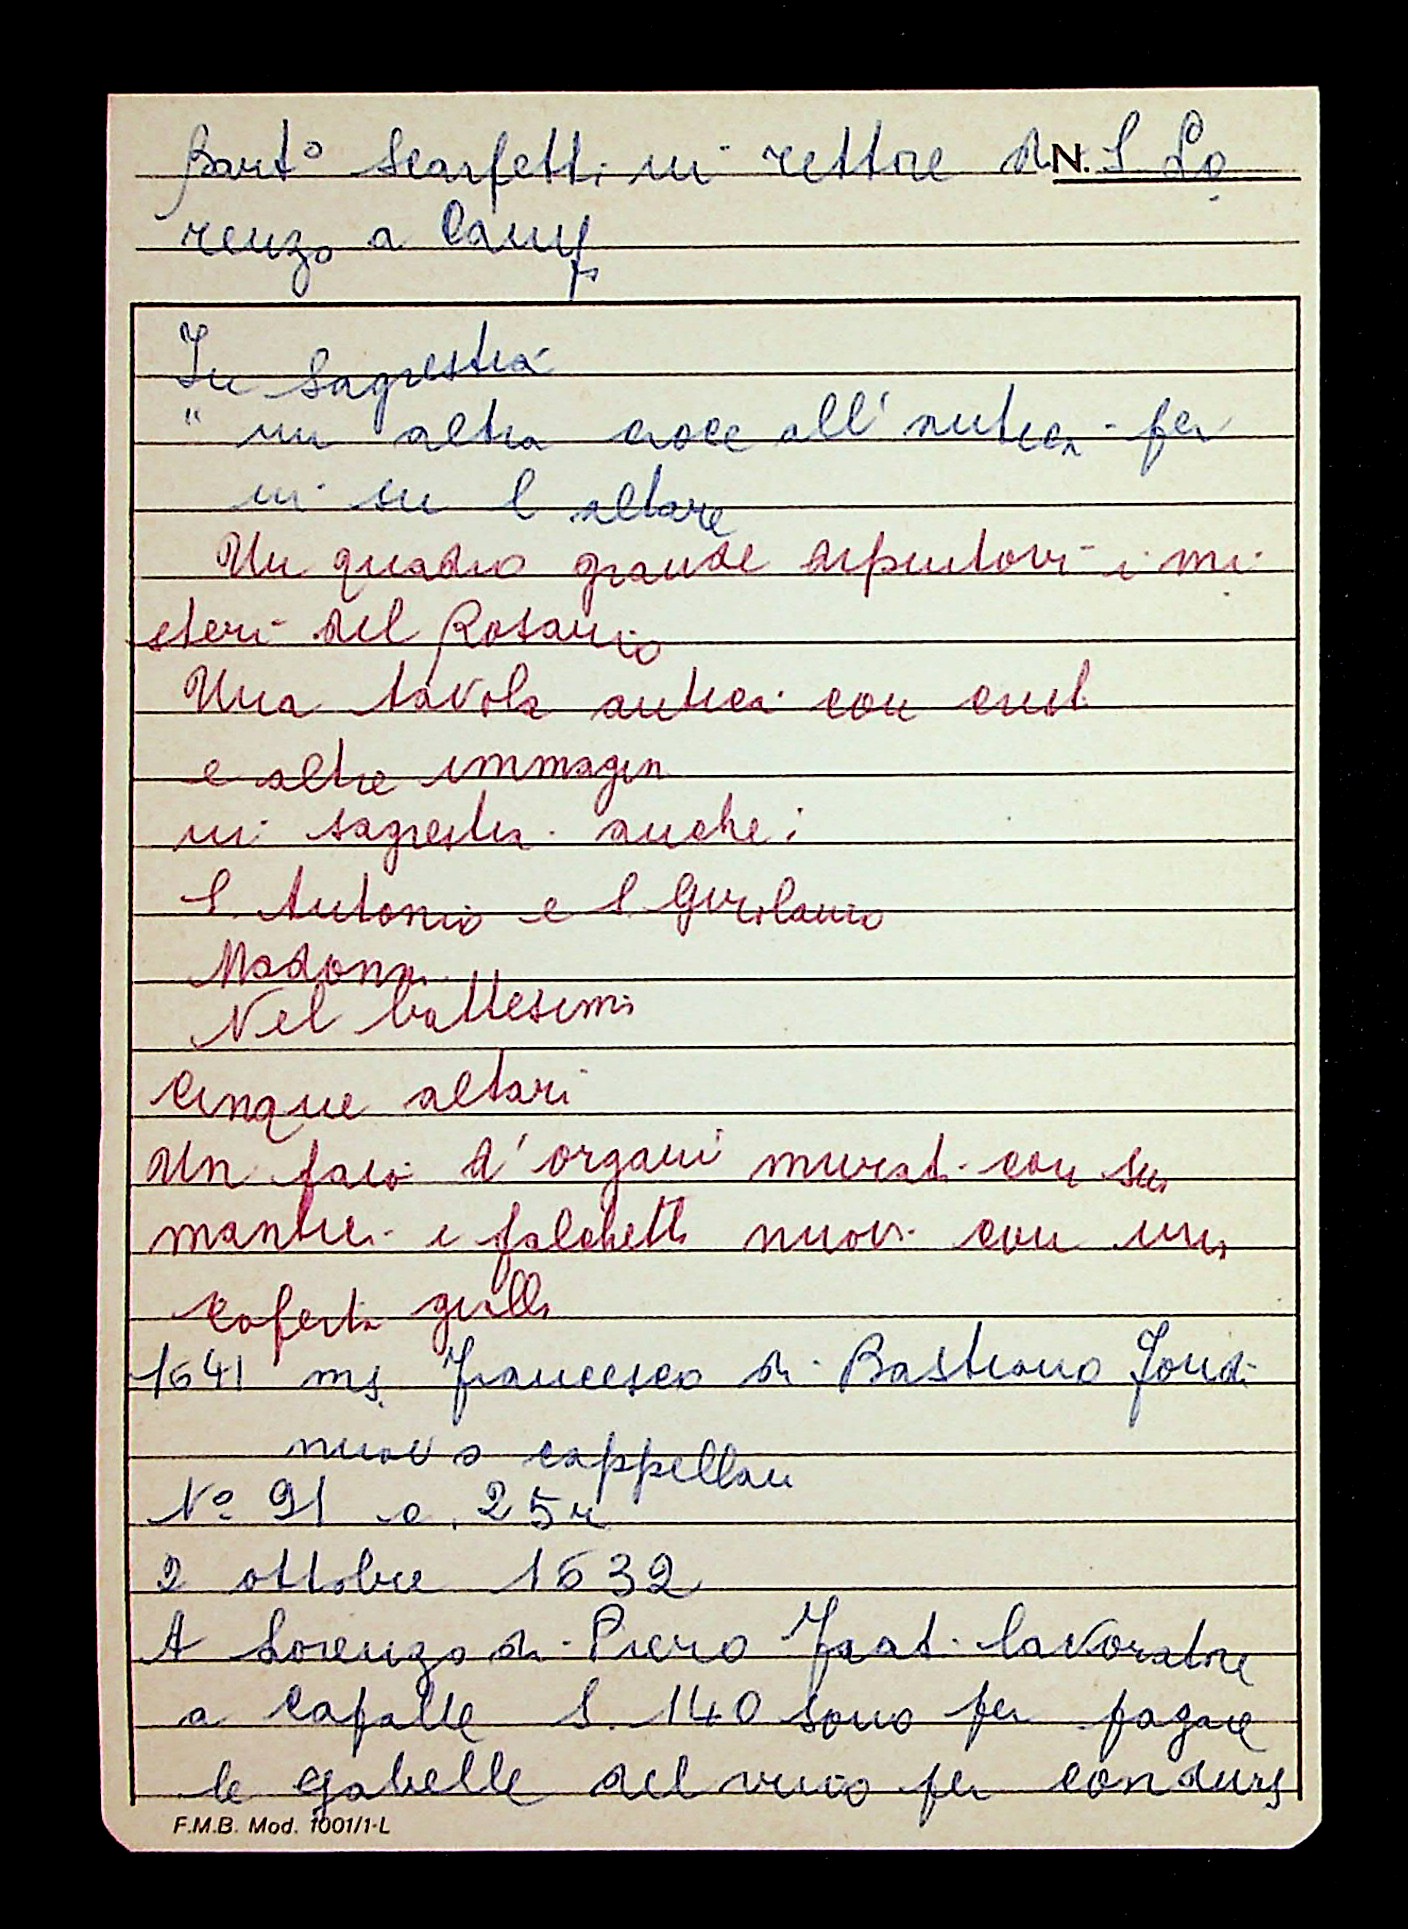 Bart° Scarfetti in rettore di N. S Lo
renzo a Camp
In Sagrestia
" un altra croce all'antica per
in su l altare
Un quadro grande dipintovi i mi
steri del Rosario
Una tavola antica con
e altre immagin
in sagrestia anche:
S. Antonio e S. Girolamo
Madonna
Nel battesimo
Cinque altari
Un paio d'organi murati con sua
mantici e palchetti nuovi con una
coperta gialla
1641 ms Francesco di Bastiano
nuovo cappellan
N° 91 c. 25r
2 ottobre 1632
A Lorenzo di Piero lavoratore
a Capalle S. 140 sono per pagare
le gabelle del vino per condurs
F.M.B. Mod. 1001/1-L